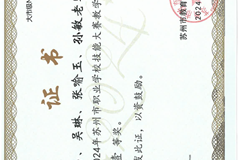 大市级
证书
、吴琳、张喻玉、孙敏老
024年苏州市职业学校技能大赛教学
壹等奖。
发此证，以资鼓励。
苏州市教育
2024